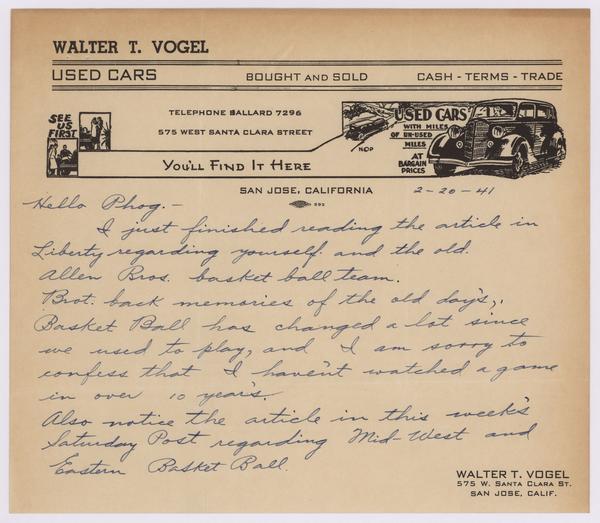 WALTER T. VOGEL
USED CARS BOUGHT AND SOLD CASH - TERMS - TRADE
SEE US FIRST
TELEPHONE BALLARD 7296
575 WEST SANTA CLARA STREET
YOU'LL FIND IT HERE
USED CARS
WITH MILES
OF UN-USED
MILES
AT
BARGAIN
PRICES
SAN JOSE, CALIFORNIA 2-20-41
592
Hello Phog.-
I just finished reading the article in
Liberty regarding yourself and the old.
Allen Bros. basket ball team.
Brot. back memories of the old day's,
Basket Ball has changed a lot since
we used to play, and I am sorry to
confess that I haven't watched a game
in over 10 year's.
Also notice the article in this week's
Saturday Post regarding Mid-West and
Eastern Basket Ball.
WALTER T. VOGEL
575 W. SANTA CLARA ST.
SAN JOSE, CALIF.